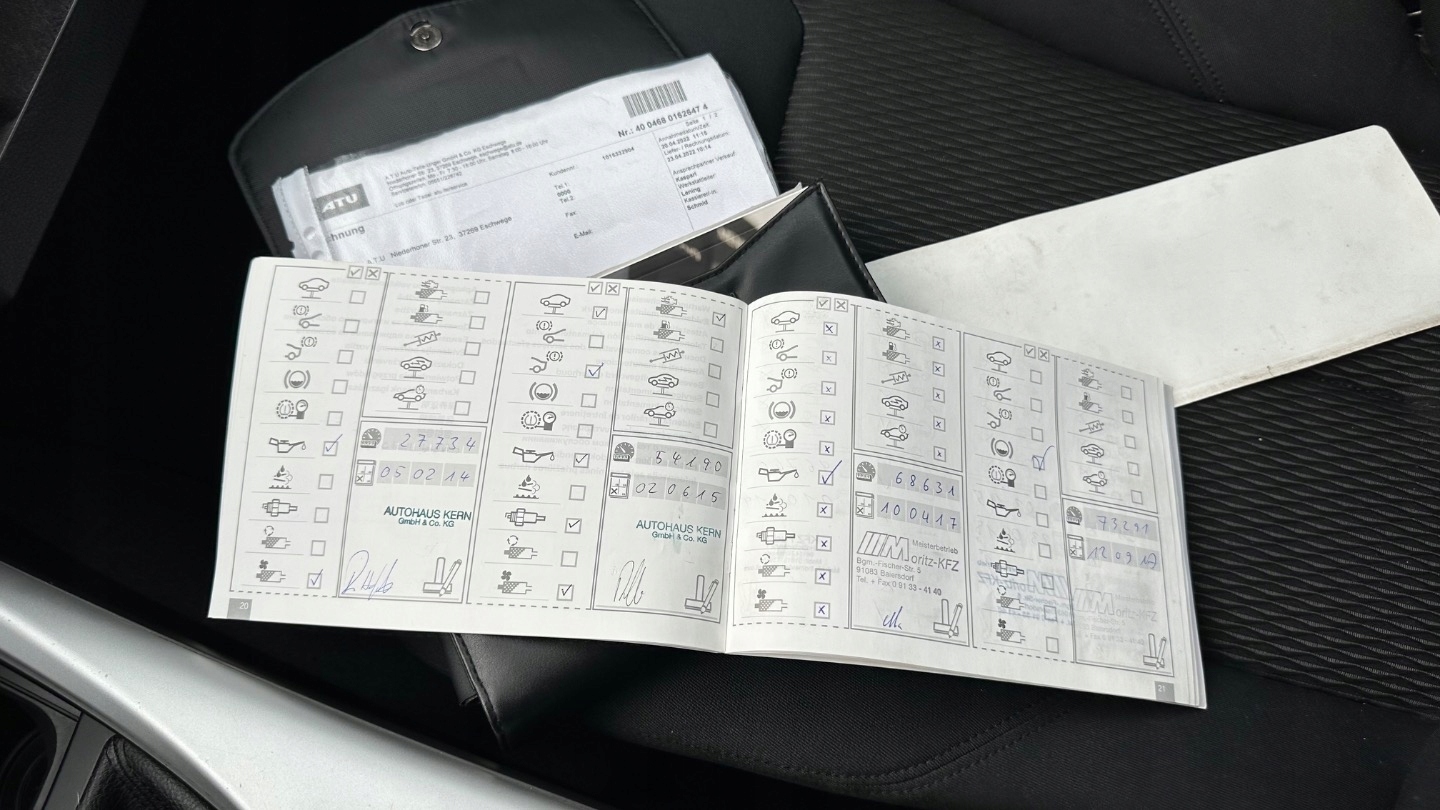 Nr.: 40 0468 0162647 4
Seite 1 / 2
Annahmedatum/Zeit
11:15
Liefer- / Rechnungsdatum:
23.04.2022 10:14
ATU
A.T.U Auto-Teile-Unger GmbH & Co. KG Eschwege
Kundennr.:
Tel.1:
0000
Tel.2:
Fax:
E-Mail:
Ansprechpartner Verkauf:
Kaspari
Werkstattleiter:
Laning
Kassierer/-in:
Schmid
hnung
A.T.U Niederhoner Str. 23, 37269 Eschwege
27734
05 02 14
AUTOHAUS KERN
GmbH & Co. KG
20
54190
02 06 15
AUTOHAUS KERN
GmbH & Co. KG
68631
10 04 17
Meisterbetrieb
Moritz-KFZ
Bgm.-Fischer-Str. 5
91083 Baiersdorf
Tel. + Fax 0 91 33 - 41 40
73291
12 09 17
21